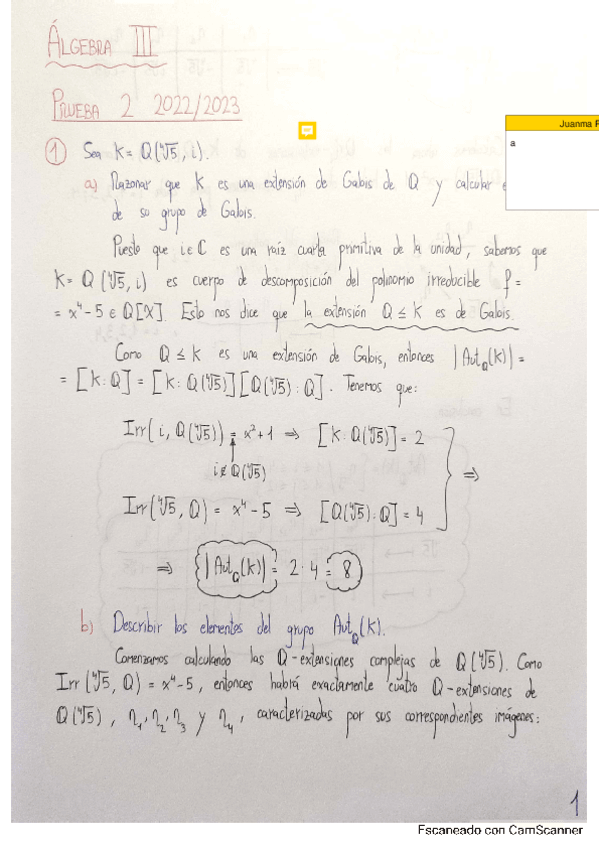 ÁLGEBRA III
PRUEBA 2 2022/2023
Juanma
a
1 Sea K = Q(⁴√5, i).
a) Razonar que K es una extensión de Galois de Q y calcular
de su grupo de Galois.
Puesto que i ∈ C es una raíz cuarta primitiva de la unidad, sabemos que
K = Q(⁴√5, i) es cuerpo de descomposición del polinomio irreducible f =
= x⁴-5 ∈ Q[X]. Esto nos dice que la extensión Q ≤ K es de Galois.
Como Q ≤ K es una extensión de Galois, entonces |Aut_Q(K)| =
= [K:Q] = [K:Q(⁴√5)][Q(⁴√5):Q]. Tenemos que:
Irr(i, Q(⁴√5)) = x²+1 ⇒ [K:Q(⁴√5)] = 2
i ∉ Q(⁴√5)
⇒
Irr(⁴√5, Q) = x⁴-5 ⇒ [Q(⁴√5):Q] = 4
⇒ |Aut_Q(K)| = 2·4 = 8
b) Describir los elementos del grupo Aut_Q(K).
Comenzamos calculando las Q-extensiones complejas de Q(⁴√5). Como
Irr(⁴√5, Q) = x⁴-5, entonces habrá exactamente cuatro Q-extensiones de
Q(⁴√5), η₁, η₂, η₃ y η₄, caracterizadas por sus correspondientes imágenes:
1
Escaneado con CamScanner